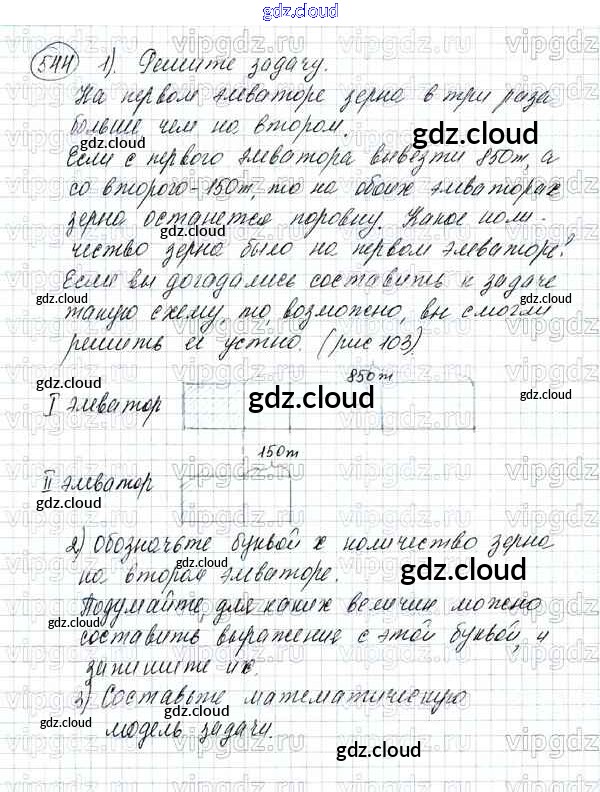 gdz.cloud
544 1). Решите задачу.
На первом элеваторе зерна в три раза
больше чем на втором.
gdz.cloud
Если с первого элеватора вывезти 850т, а
со второго-150т, то на обоих элеваторах
зерна останется поровну. Какое коли-
gdz.cloud
чество зерна было на первом элеваторе?
Если вы догадались составить к задаче
gdz.cloud gdz.cloud
такую схему, то, возможно, вы смогли
решить её устно. (рис 103).
gdz.cloud
850т
I элеватор
gdz.cloud
gdz.cloud
150т
II элеватор
2) Обозначьте буквой x количество зерна
на втором элеваторе.
gdz.cloud
gdz.cloud
Подумайте, для каких величин можно
составить выражение с этой буквой, и
запишите их.
gdz.cloud
3) Составьте математическую
gdz.cloud
модель задачи.
gdz.cloud
gdz.cloud